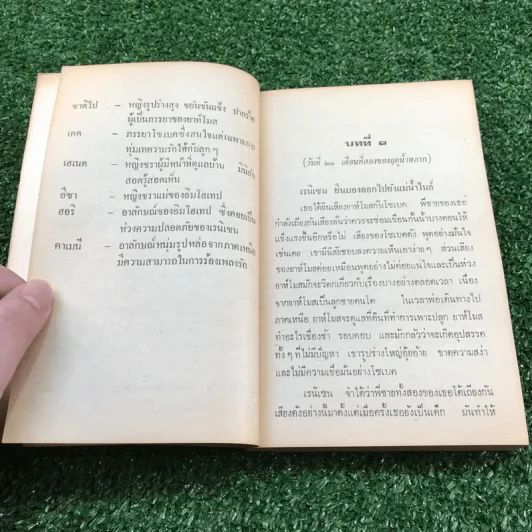 ซาติไป – หญิงรูปร่างสูง ขยันขันแข็ง ปากร้าย
ผู้เป็นภรรยาของยาห์โมส
เคต – ภรรยาโซเบคซึ่งสนใจแต่เฉพาะการ
ทุ่มเทความรักให้กับลูกๆ
เฮเนต – หญิงชราผู้มีหน้าที่ดูแลบ้าน มีนิสัย
สอดรู้สอดเห็น
อีซา – หญิงชราแม่ของอิมโฮเทป
ฮอรี – อาลักษณ์ของอิมโฮเทป ซึ่งคอยเป็น
ห่วงความปลอดภัยของเรนิเซน
คาเมนี – อาลักษณ์หนุ่มรูปหล่อจากภาคเหนือ
มีความสามารถในการร้องเพลงรัก
บทที่ ๑
(วันที่ ๒๐ เดือนที่สองของฤดูน้ำหลาก)
เรนิเซน ยืนมองออกไปยังแม่น้ำไนล์
เธอได้ยินเสียงยาห์โมสกับโซเบค พี่ชายของเธอ
กำลังเถียงกันเสียงลั่นว่าควรจะซ่อมเขื่อนกั้นน้ำบางตอนให้
แข็งแรงขึ้นอีกหรือไม่ เสียงของโซเบคดัง พูดอย่างมั่นใจ
เช่นเคย เขามีนิสัยชอบลงความเห็นเอาง่ายๆ ส่วนเสียง
ของยาห์โมสค่อยเหมือนพูดอย่างไม่ค่อยแน่ใจและเป็นห่วง
ยาห์โมสมักจะวิตกเกี่ยวกับเรื่องบางอย่างตลอดเวลา เนื่อง
จากยาห์โมสเป็นลูกชายคนโต ในเวลาพ่อเดินทางไป
ภาคเหนือ ยาห์โมสจะดูแลที่ดินที่ทำการเพาะปลูก ยาห์โมส
ทำอะไรเชื่องช้า รอบคอบ และมักกลัวว่าจะเกิดอุปสรรค
ทั้งๆ ที่ไม่มีปัญหา เขารูปร่างใหญ่อุ้ยอ้าย ขาดความสง่า
และไม่มีความเชื่อมั่นอย่างโซเบค
เรนิเซน จำได้ว่าพี่ชายทั้งสองของเธอได้เถียงกัน
เสียงดังอย่างนี้มาตั้งแต่เมื่อครั้งเธอยังเป็นเด็ก มันทำให้